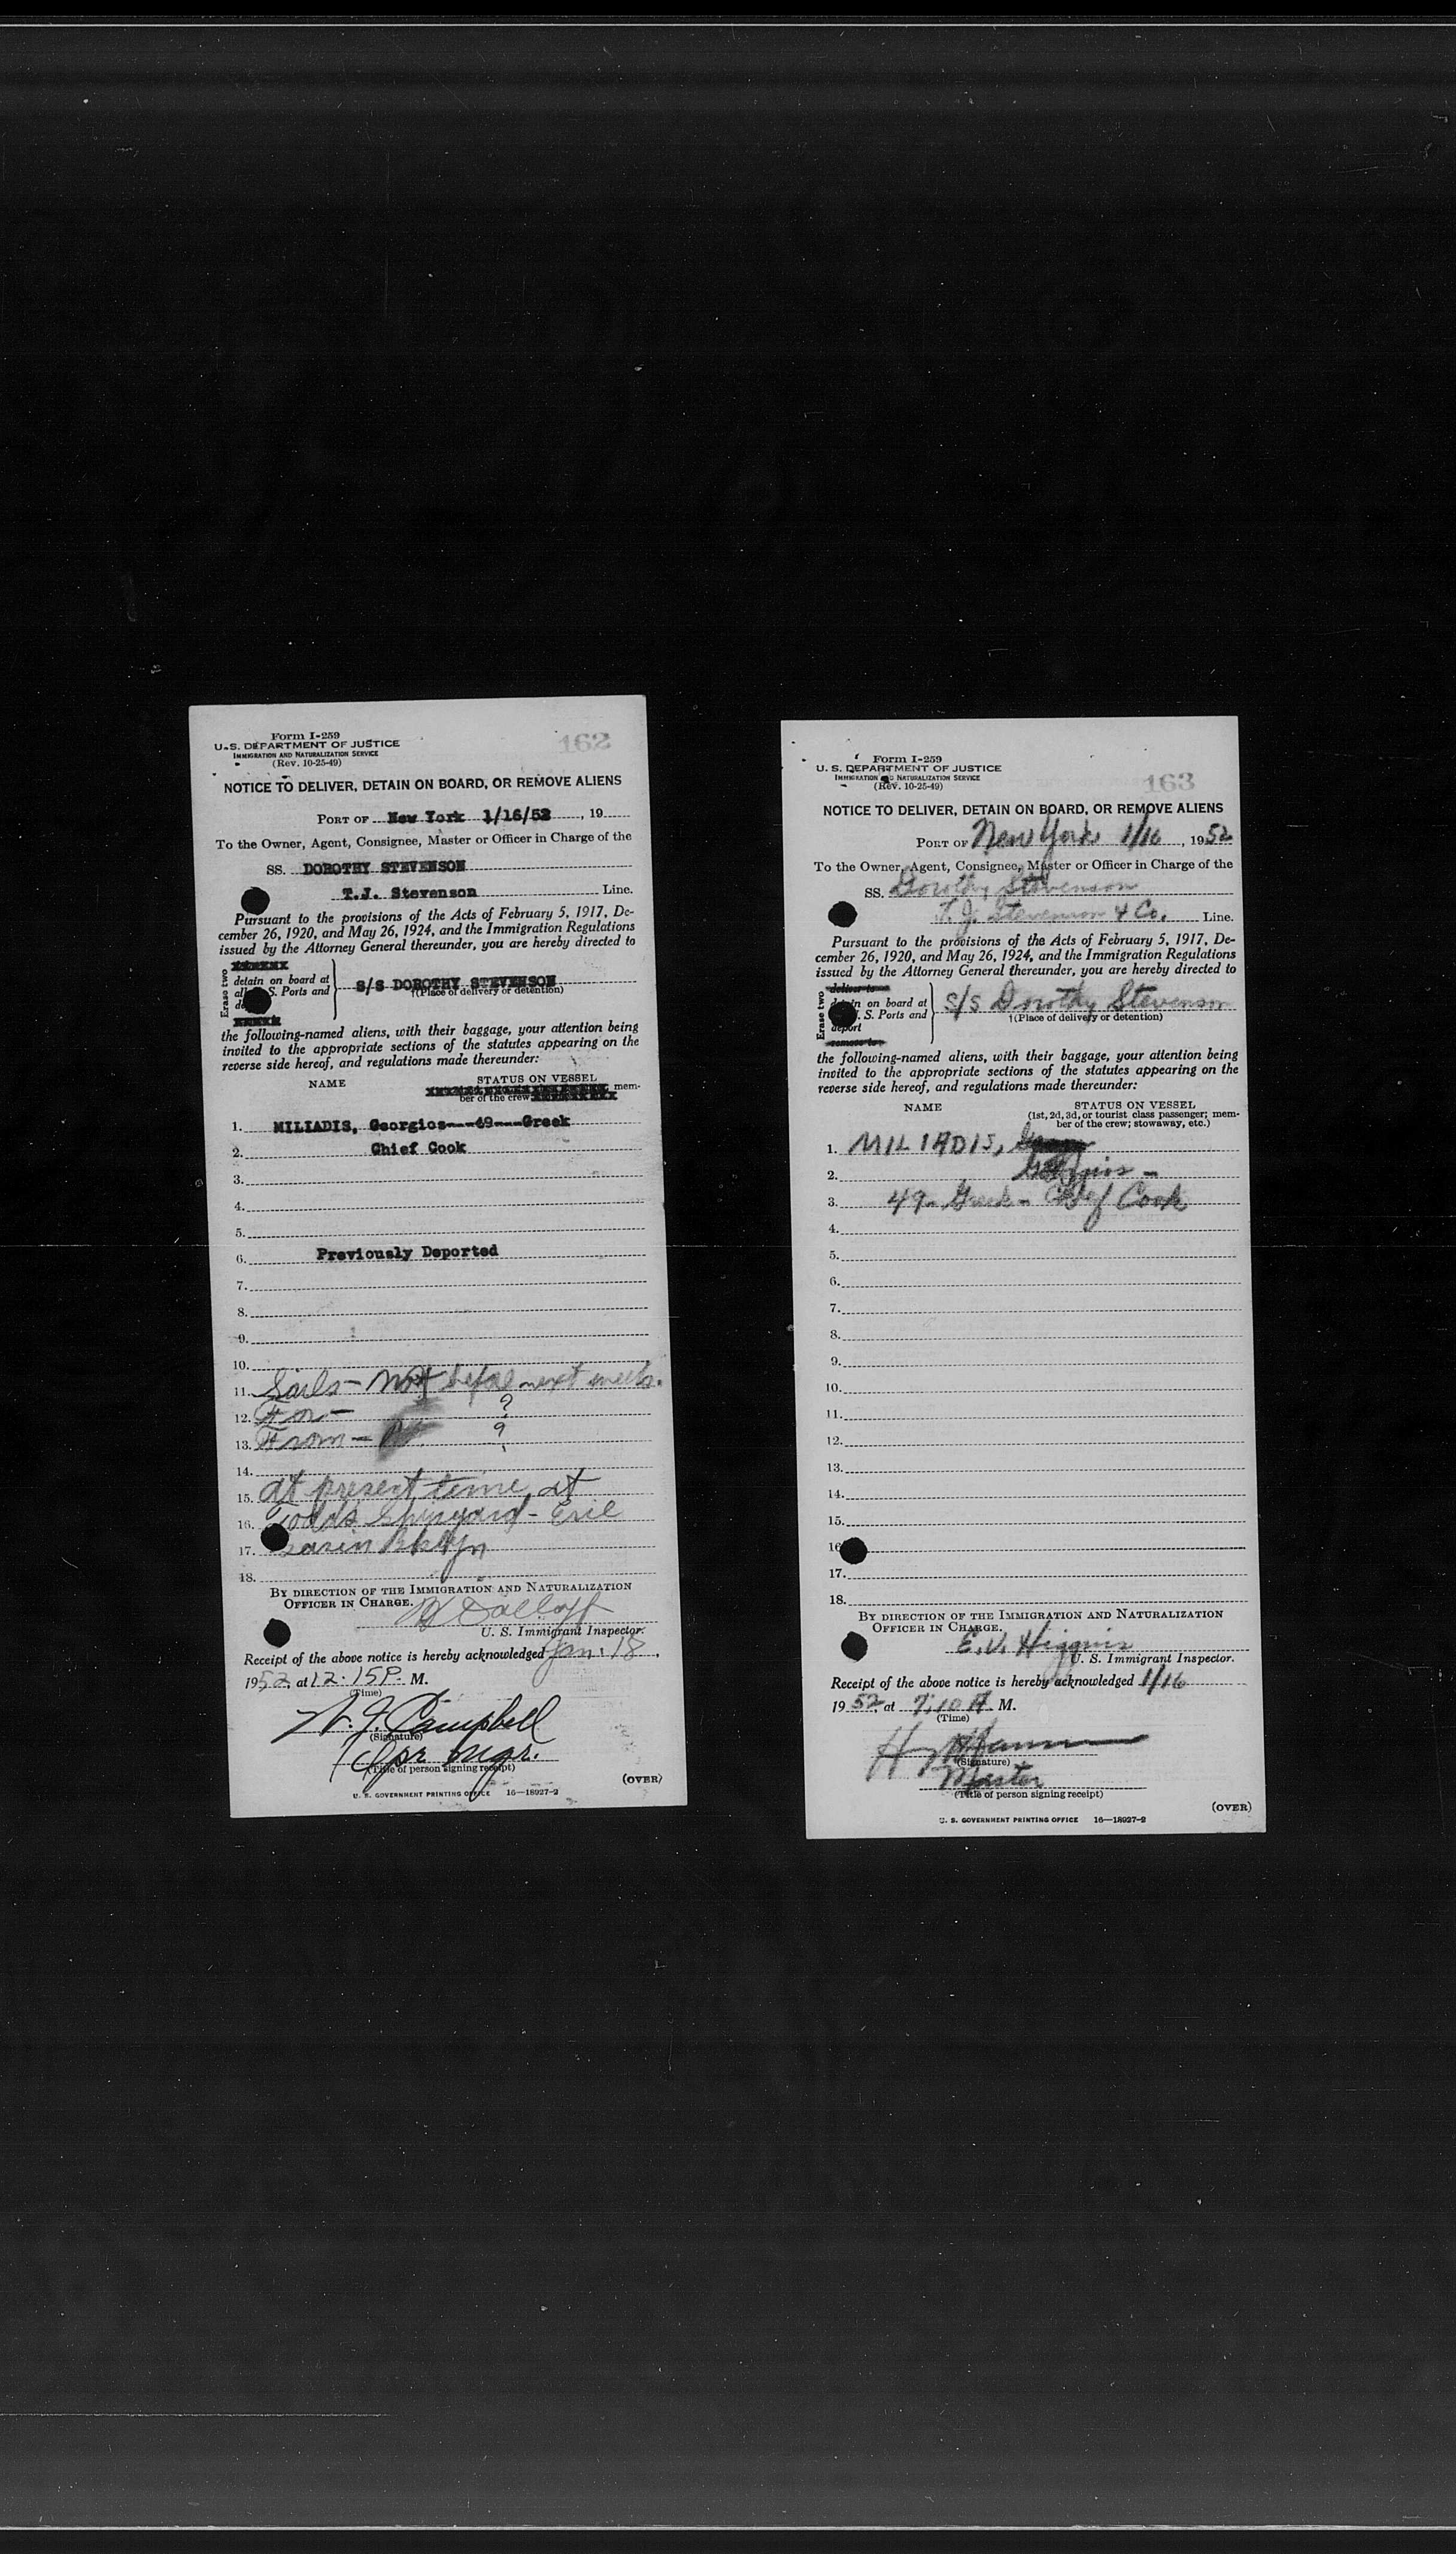 Form I-259
U. S. DEPARTMENT OF JUSTICE
IMMIGRATION AND NATURALIZATION SERVICE
(Rev. 10-25-49)
162
NOTICE TO DELIVER, DETAIN ON BOARD, OR REMOVE ALIENS
PORT OF New York 1/16/52, 19
To the Owner, Agent, Consignee, Master or Officer in Charge of the
SS. DOROTHY STEVENSON
T.J. Stevenson Line.
Pursuant to the provisions of the Acts of February 5, 1917, De-
cember 26, 1920, and May 26, 1924, and the Immigration Regulations
issued by the Attorney General thereunder, you are hereby directed to
Erase two
detain on board at
S. Ports and
S/S DOROTHY STEVENSON
†(Place of delivery or detention)
the following-named aliens, with their baggage, your attention being
invited to the appropriate sections of the statutes appearing on the
reverse side hereof, and regulations made thereunder:
NAME STATUS ON VESSEL
mem-
ber of the crew
1. MILIADIS, Georgios---49---Greek
2. Chief Cook
3.
4.
5.
6. Previously Deported
7.
8.
9.
10.
11. Sails - Not before next week.
12. For - ?
13. From - ?
14.
15. At present time, at
16. Todds Shipyard - Erie
17. Basin Bklyn
18.
BY DIRECTION OF THE IMMIGRATION AND NATURALIZATION
OFFICER IN CHARGE.
U. S. Immigrant Inspector.
Receipt of the above notice is hereby acknowledged Jan. 18,
1952, at 12:15 P. M.
(Time)
W. J. Campbell
(Signature)
Opr Mgr.
(Title of person signing receipt)
(OVER)
U. S. GOVERNMENT PRINTING OFFICE 16—18927-2
Form I-259
U. S. DEPARTMENT OF JUSTICE
IMMIGRATION AND NATURALIZATION SERVICE
(Rev. 10-25-49)
163
NOTICE TO DELIVER, DETAIN ON BOARD, OR REMOVE ALIENS
PORT OF New York 1/16, 1952
To the Owner, Agent, Consignee, Master or Officer in Charge of the
SS. Dorothy Stevenson
T. J. Stevenson & Co. Line.
Pursuant to the provisions of the Acts of February 5, 1917, De-
cember 26, 1920, and May 26, 1924, and the Immigration Regulations
issued by the Attorney General thereunder, you are hereby directed to
Erase two
deliver to
detain on board at
S. Ports and
deport
remove to
S/S Dorothy Stevenson
†(Place of delivery or detention)
the following-named aliens, with their baggage, your attention being
invited to the appropriate sections of the statutes appearing on the
reverse side hereof, and regulations made thereunder:
NAME STATUS ON VESSEL
(1st, 2d, 3d, or tourist class passenger; mem-
ber of the crew; stowaway, etc.)
1. MILIADIS,
2. Georgios -
3. 49 - Greek - Chief Cook
4.
5.
6.
7.
8.
9.
10.
11.
12.
13.
14.
15.
16
17.
18.
BY DIRECTION OF THE IMMIGRATION AND NATURALIZATION
OFFICER IN CHARGE.
E. V. Higgins
U. S. Immigrant Inspector.
Receipt of the above notice is hereby acknowledged 1/16
1952, at 7:10 A. M.
(Time)
(Signature)
Master
(Title of person signing receipt)
(OVER)
U. S. GOVERNMENT PRINTING OFFICE 16—18927-2